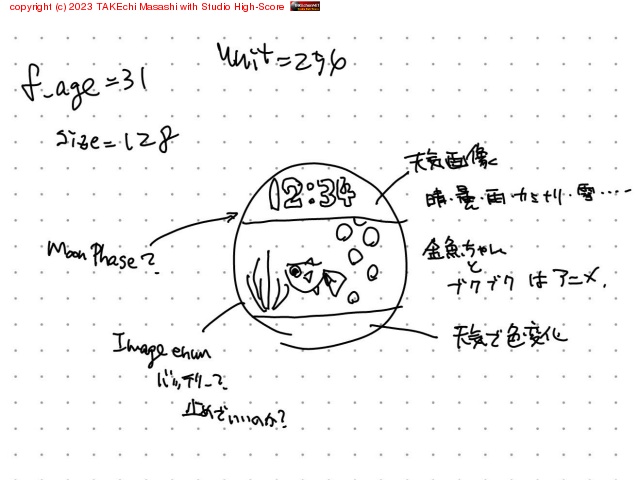 copyright (c) 2023 TAKEchi Masashi with Studio High-Score
unit=296
f_age=31
size=128
天気画像
12:34
晴・曇・雨・カミナリ・雪……
金魚ちゃん
と
ブクブク はアニメ.
Moon Phase?
天気で色変化
Image enum
バッテリー?
止めていいのか?